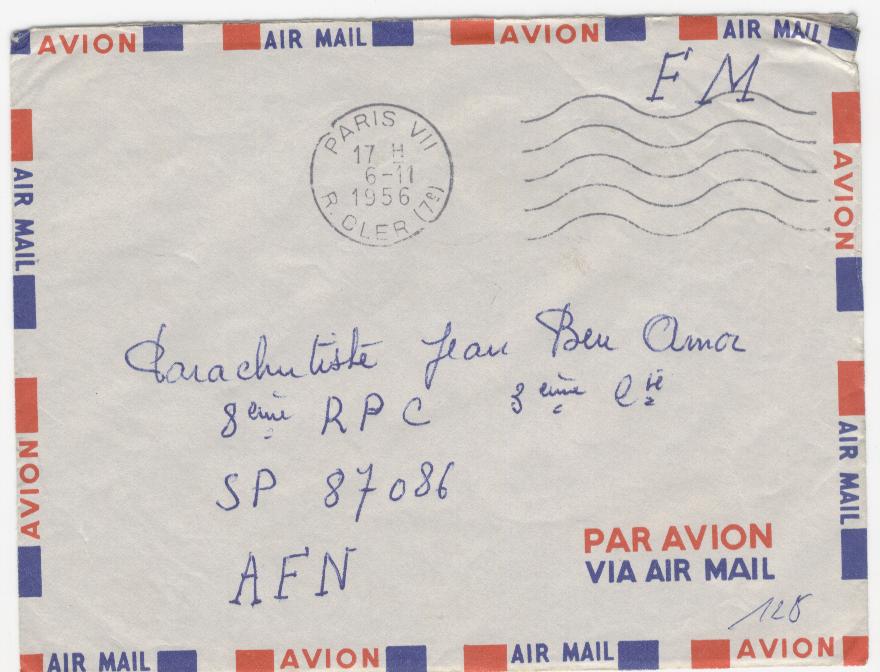 AVION AIR MAIL AVION AIR MAIL
F M
PARIS VII
17 H
6-11
1956
R. CLER (7e)
AIR MAIL
AVION
AVION
AIR MAIL
Parachutiste Jean Ben Amor
8ème RPC 3ème Cie
SP 87086
AFN
PAR AVION
VIA AIR MAIL
128
AIR MAIL AVION AIR MAIL AVION